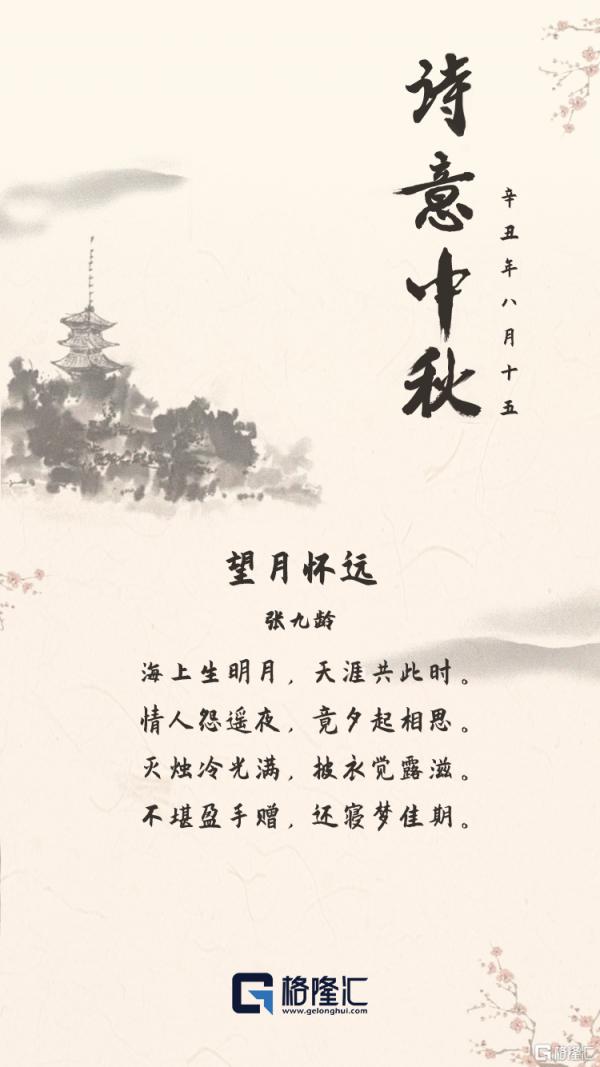 诗意中秋
辛丑年八月十五
望月怀远
张九龄
海上生明月，天涯共此时。
情人怨遥夜，竟夕起相思。
灭烛冷光满，披衣觉露滋。
不堪盈手赠，还寝梦佳期。
格隆汇
www.gelonghui.com
格隆汇